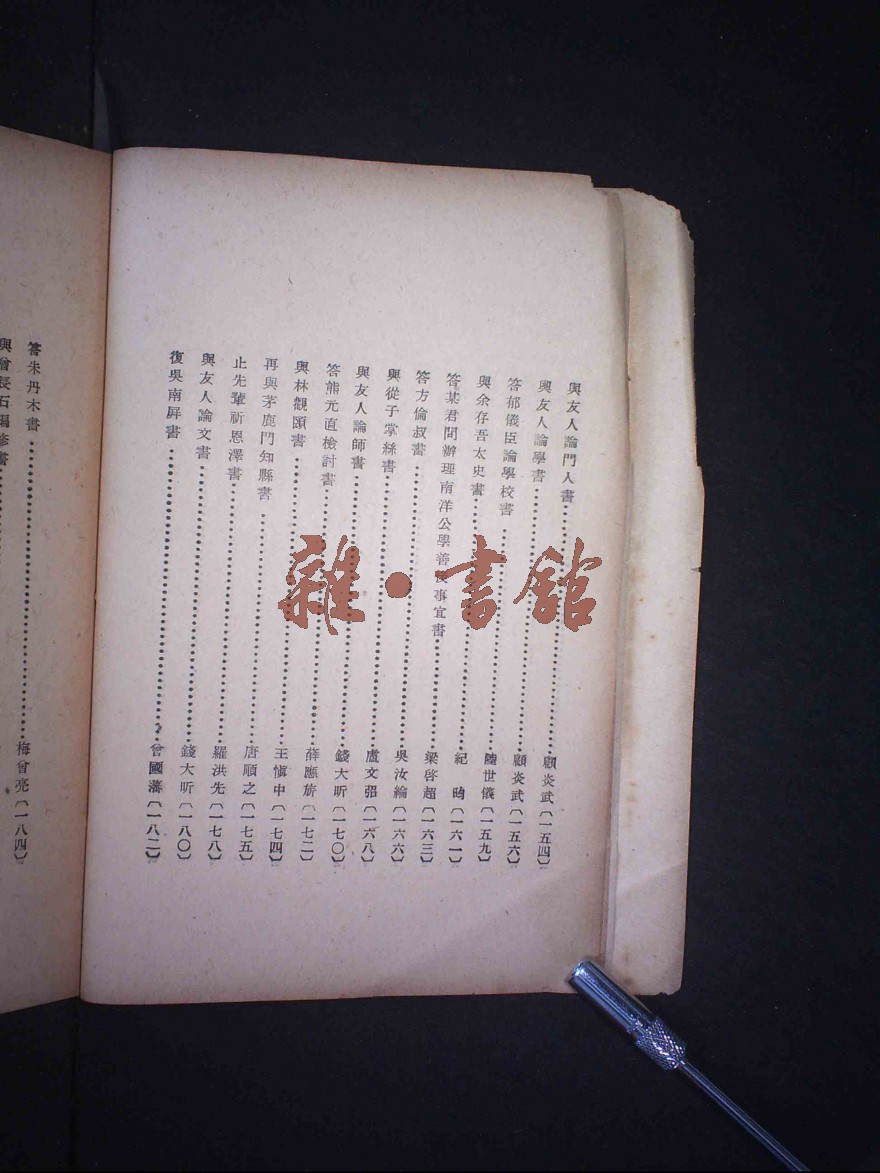 與友人論門人書……顧炎武〔一五四〕
與友人論學書……顧炎武〔一五六〕
答郁儀臣論學校書……陸世儀〔一五九〕
與余存吾太史書……紀昀〔一六一〕
答某君問辦理南洋公學善後事宜書……梁啓超〔一六三〕
答方倫叔書……吳汝綸〔一六六〕
與從子掌絲書……盧文弨〔一六八〕
與友人論師書……錢大昕〔一七〇〕
答熊元直檢討書……薛應旂〔一七二〕
與林觀頤書……王愼中〔一七四〕
再與茅鹿門知縣書……唐順之〔一七五〕
止先輩祈恩澤書……羅洪先〔一七八〕
與友人論文書……錢大昕〔一八〇〕
復吳南屏書……曾國藩〔一八二〕
答朱丹木書……梅曾亮〔一八四〕
雜·書館